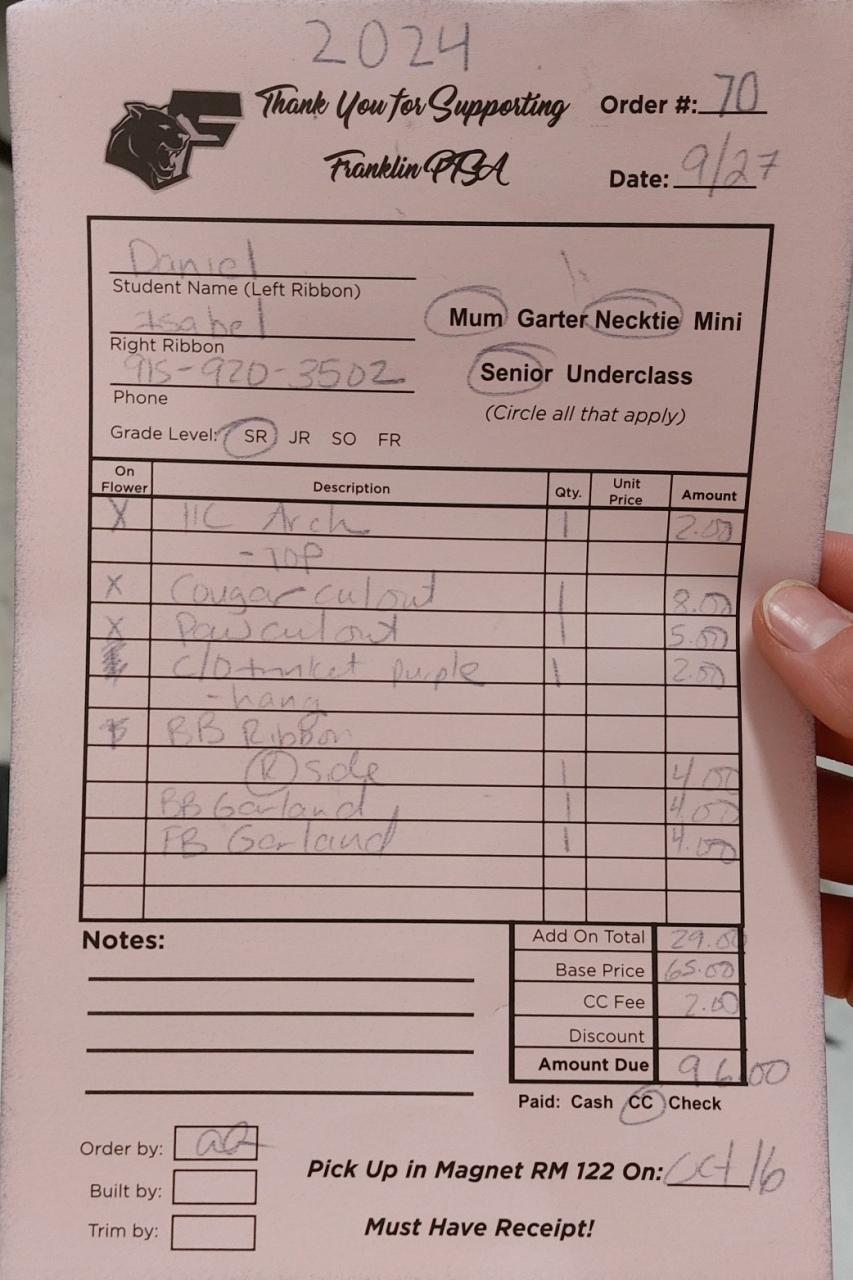 2024
Thank You for Supporting
Franklin PTSA
Order #: 70
Date: 9/27
Daniel
Student Name (Left Ribbon)
Isabel
Right Ribbon
915-920-3502
Phone
Grade Level: SR JR SO FR
Mum Garter Necktie Mini
Senior Underclass
(Circle all that apply)
On Flower Description Qty. Unit Price Amount
X HC Arch 1 2.00
- TOP
X Cougar cutout 1 8.00
X Paw cutout 1 5.00
C/O trinket purple 1 2.00
- hang
BB Ribbon
R side 1 4.00
BB Garland 1 4.00
FB Garland 1 4.00
Notes:
Add On Total 29.00
Base Price 65.00
CC Fee 2.00
Discount
Amount Due 96.00
Paid: Cash CC Check
Order by:
Built by:
Trim by:
Pick Up in Magnet RM 122 On: Oct 16
Must Have Receipt!